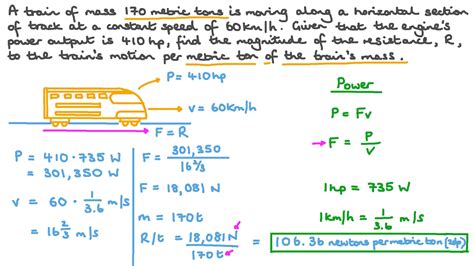 A train of mass 170 metric tons is moving along a horizontal section
of track at a constant speed of 60km/h. Given that the engine's
power output is 410hp, find the magnitude of the resistance, R,
to the train's motion per metric ton of the train's mass.
P = 410hp
v = 60km/h
F = R
P = 410·735 W
= 301,350 W
v = 60 · 1/3.6 m/s
= 16 2/3 m/s
F = 301,350 / 16 2/3
F = 18,081 N
m = 170t
R/t = 18,081N / 170t = 106.36 newtons per metric ton (2dp)
Power
P = Fv
→ F = P/v
1hp = 735 W
1km/h = 1/3.6 m/s